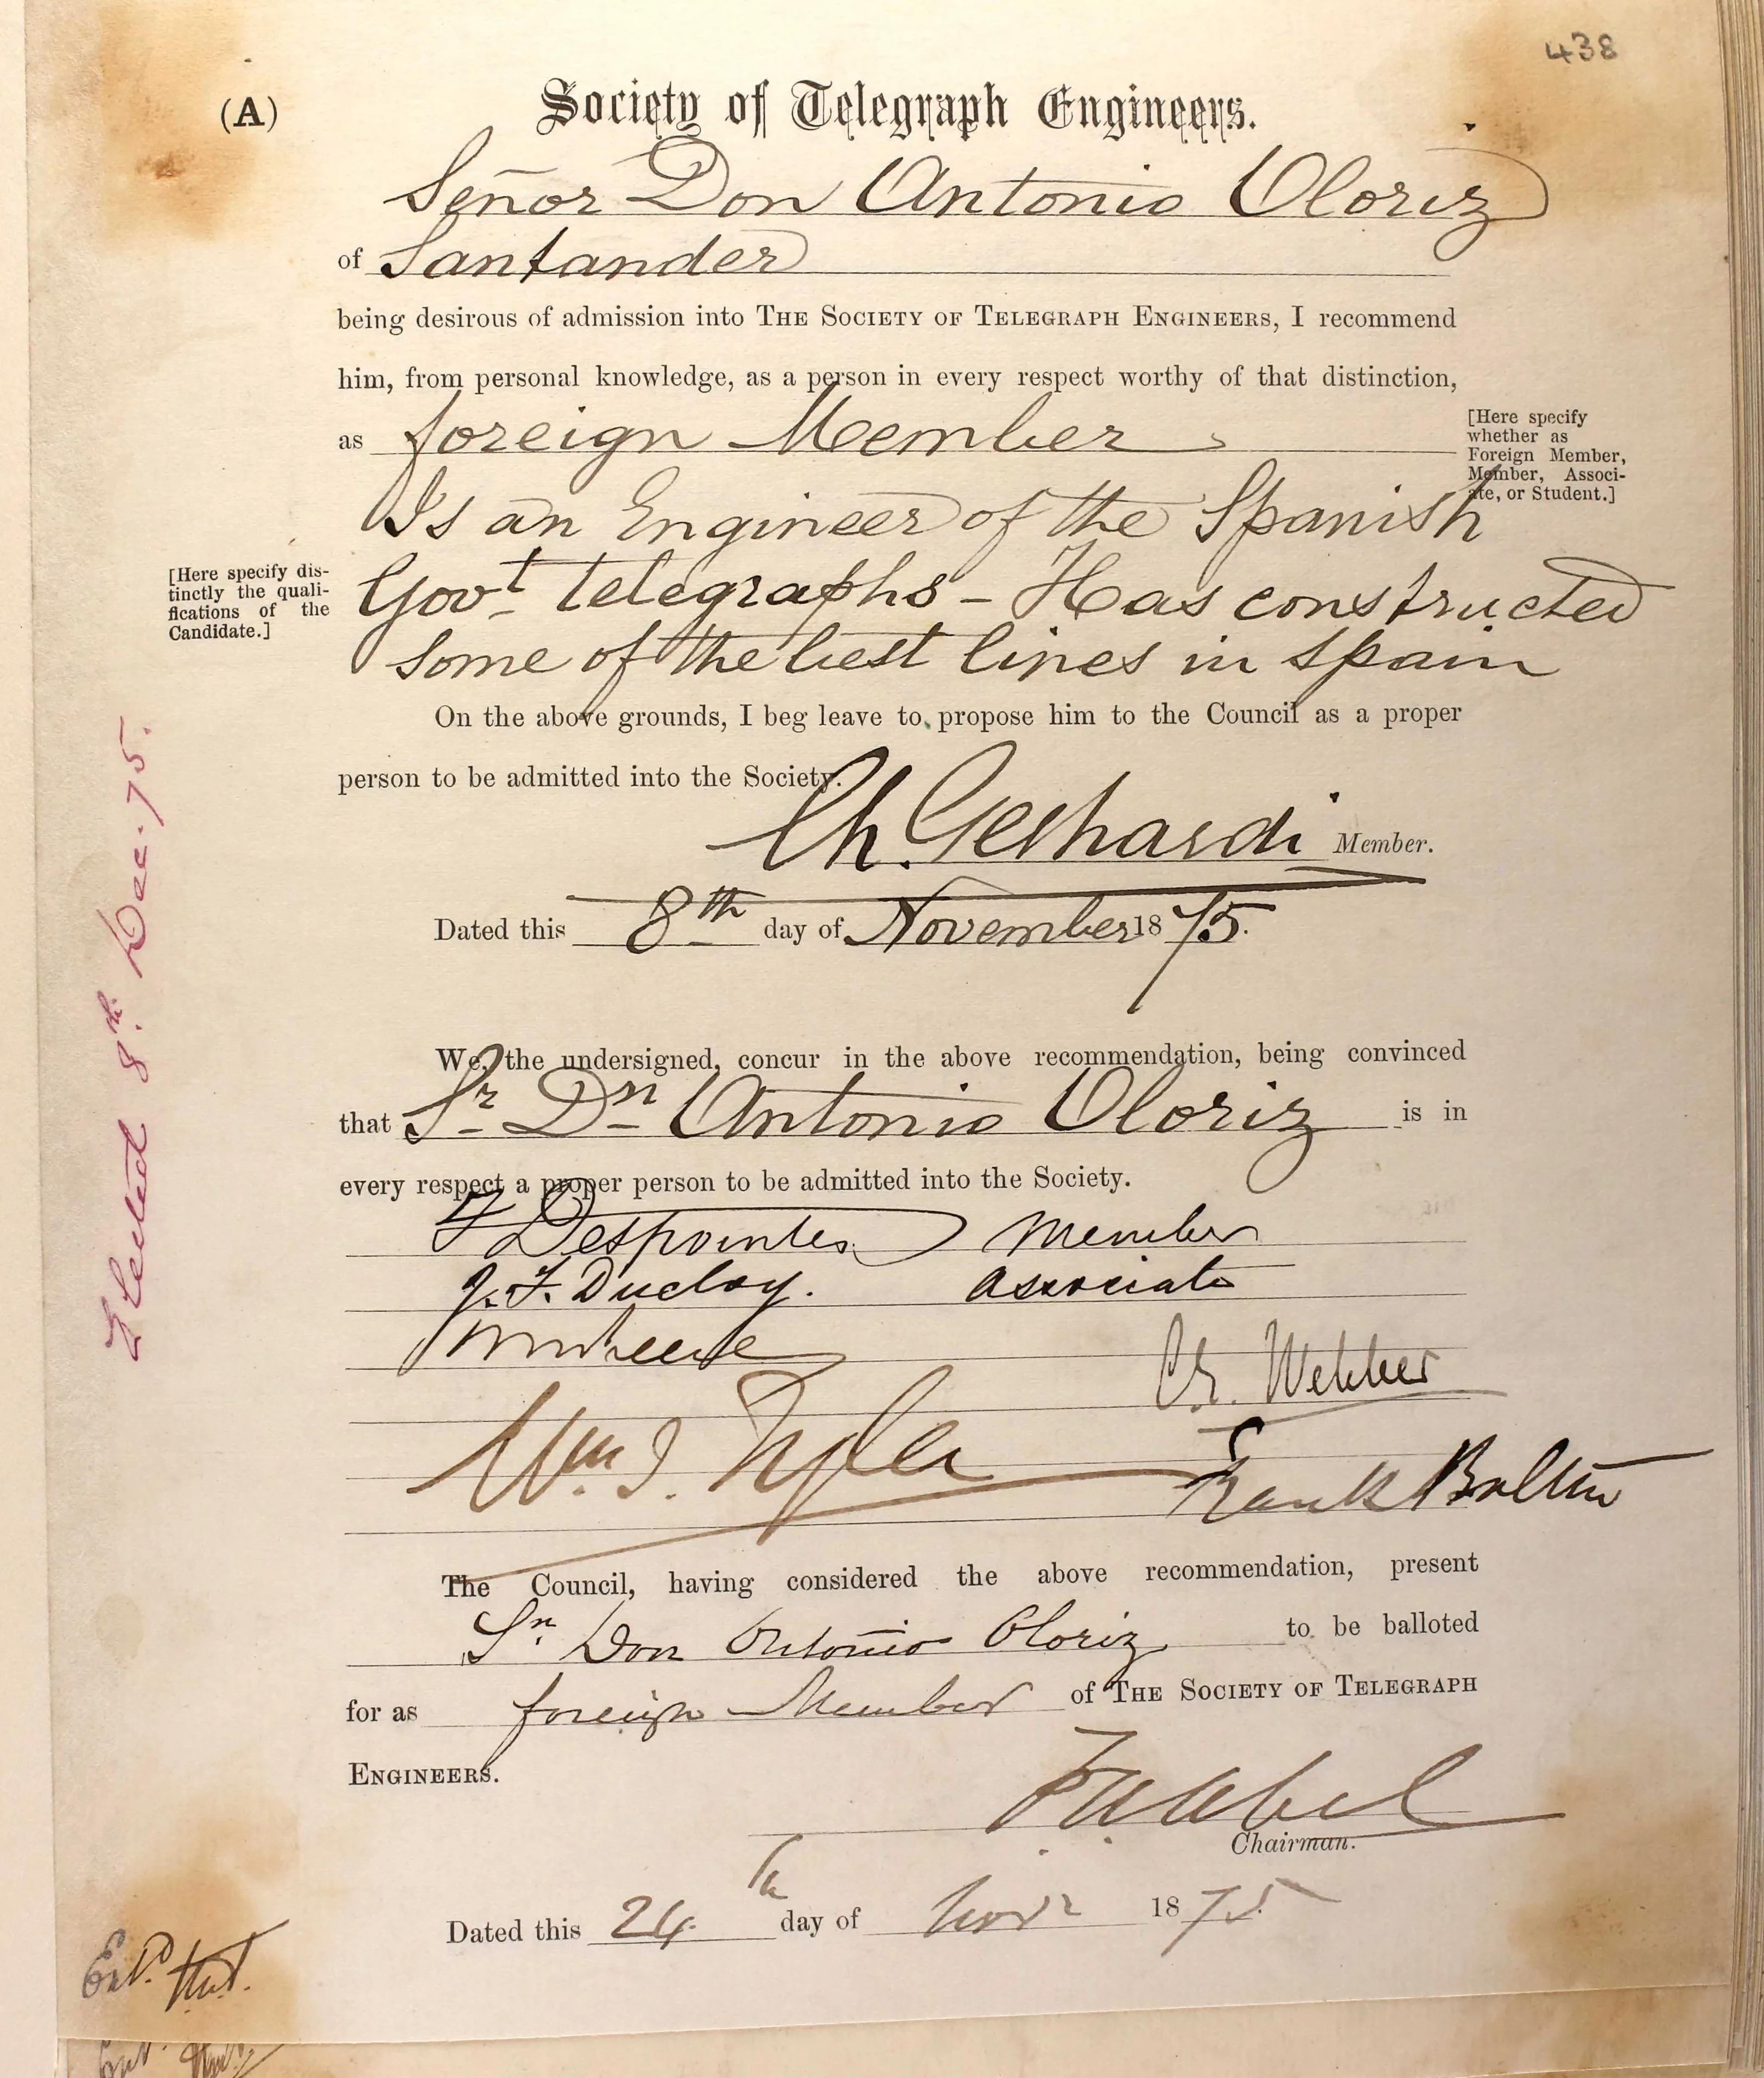 438
(A)
Society of Telegraph Engineers.
Señor Don Antonio Oloriz
of Santander
being desirous of admission into THE SOCIETY OF TELEGRAPH ENGINEERS, I recommend
him, from personal knowledge, as a person in every respect worthy of that distinction,
as foreign Member
[Here specify
whether as
Foreign Member,
Member, Associ-
ate, or Student.]
Is an Engineer of the Spanish
[Here specify dis-
tinctly the quali-
fications of the
Candidate.]
Govt telegraphs - Has constructed
some of the best lines in Spain
On the above grounds, I beg leave to propose him to the Council as a proper
person to be admitted into the Society.
Ch. Gerhardi Member.
Dated this 8th day of November 1875.
Elected 8th. Dec. 75.
We, the undersigned, concur in the above recommendation, being convinced
that Sr Dn Antonio Oloriz is in
every respect a proper person to be admitted into the Society.
F Despointes Member
J. F. Ducloy. Associate
C.E. Webber
Wm. T. Tyler
Frank Bolton
The Council, having considered the above recommendation, present
Sn. Don Antonio Oloriz to be balloted
for as foreign Member of THE SOCIETY OF TELEGRAPH
ENGINEERS.
F. A. Abel
Chairman.
Dated this 24th day of Novr 1875.